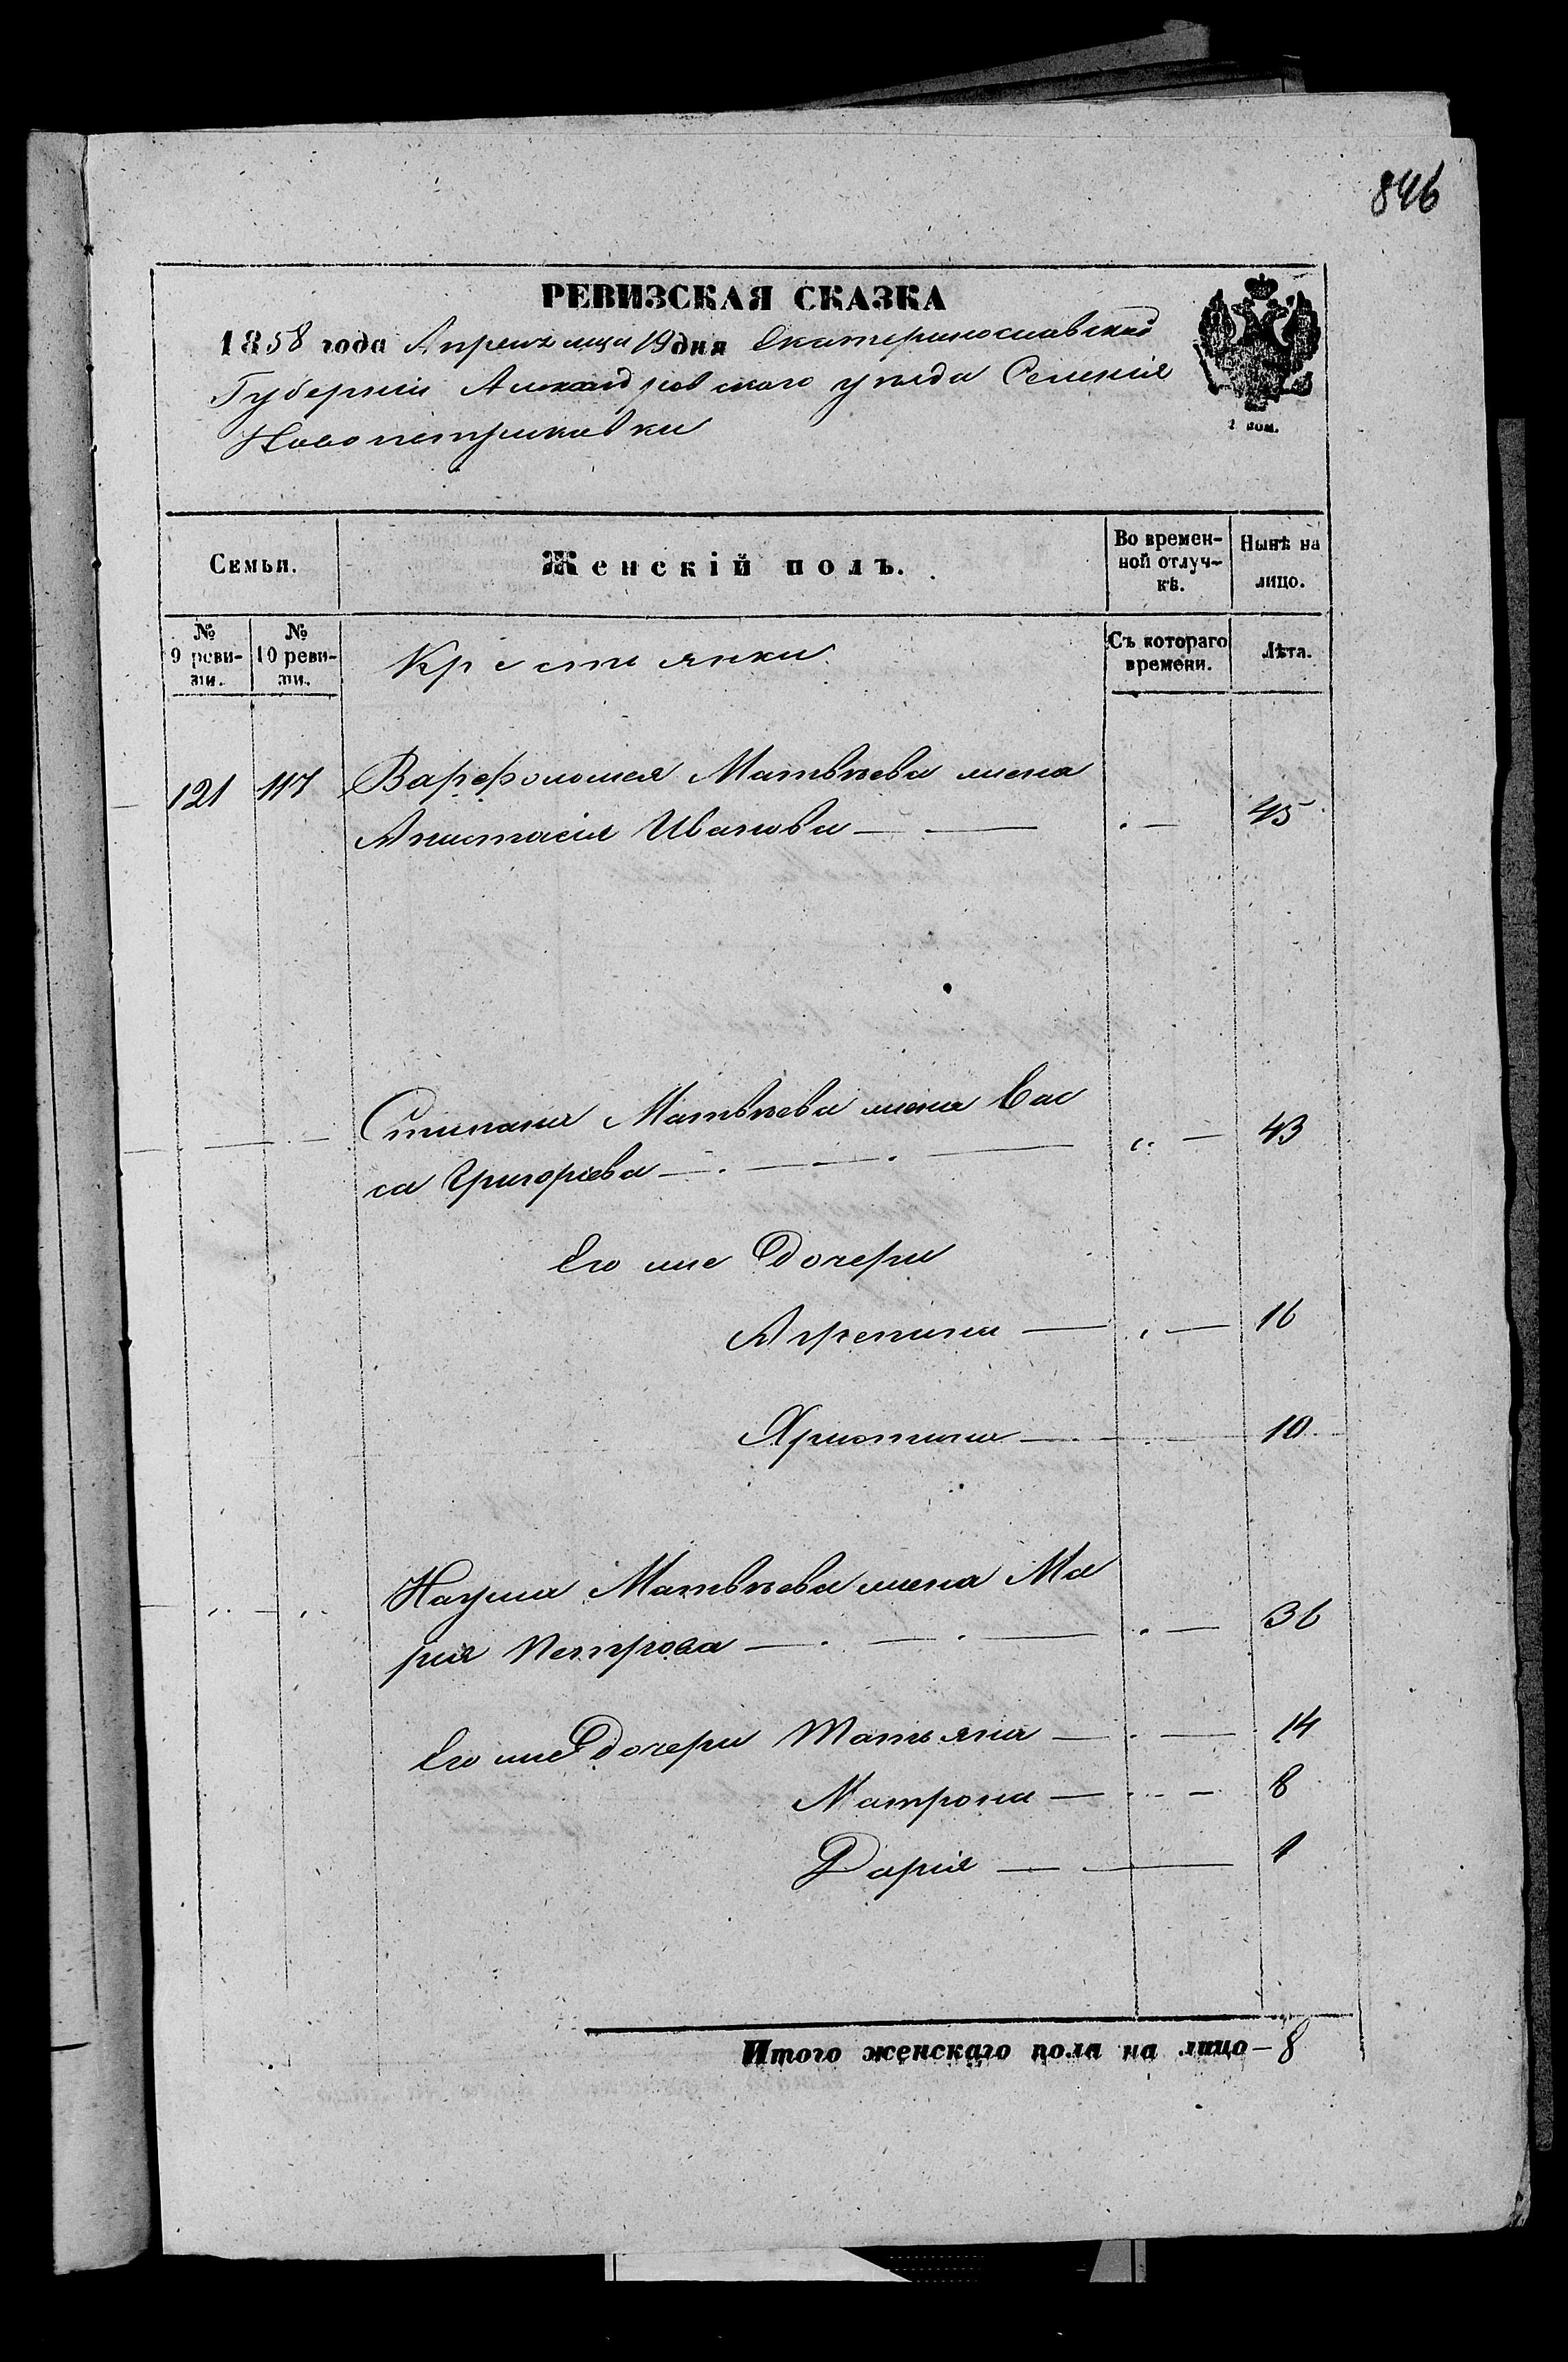 846
РЕВИЗСКАЯ СКАЗКА
1858 года Апреля мца 19 дня Екатеринославской
Губернии Александровского уезда Селения
Новопетриковки
1 пол.
Семьи.
Женскій полъ.
Во времен-
ной отлуч-
кѣ.
Нынѣ на
лицо.
№
9 реви-
зіи.
№
10 реви-
зіи.
Крестьянки
Съ котораго
времени.
Лѣта.
121 117 Варфоломея Матвѣева жена
Анастасія Иванова — — . — 45
Степана Матвѣева жена Вас
са Григоріева — . — . — „ — 43
Его же Дочери
Агрепина — . — 16
Христина — . — 10
Наума Матвѣева жена Ма
рия Петрова — . — . — . — 36
Его же Дочери Татьяна — . — 14
Матрона — . . — 8
Дарія — — 1
Итого женскаго пола на лицо — 8